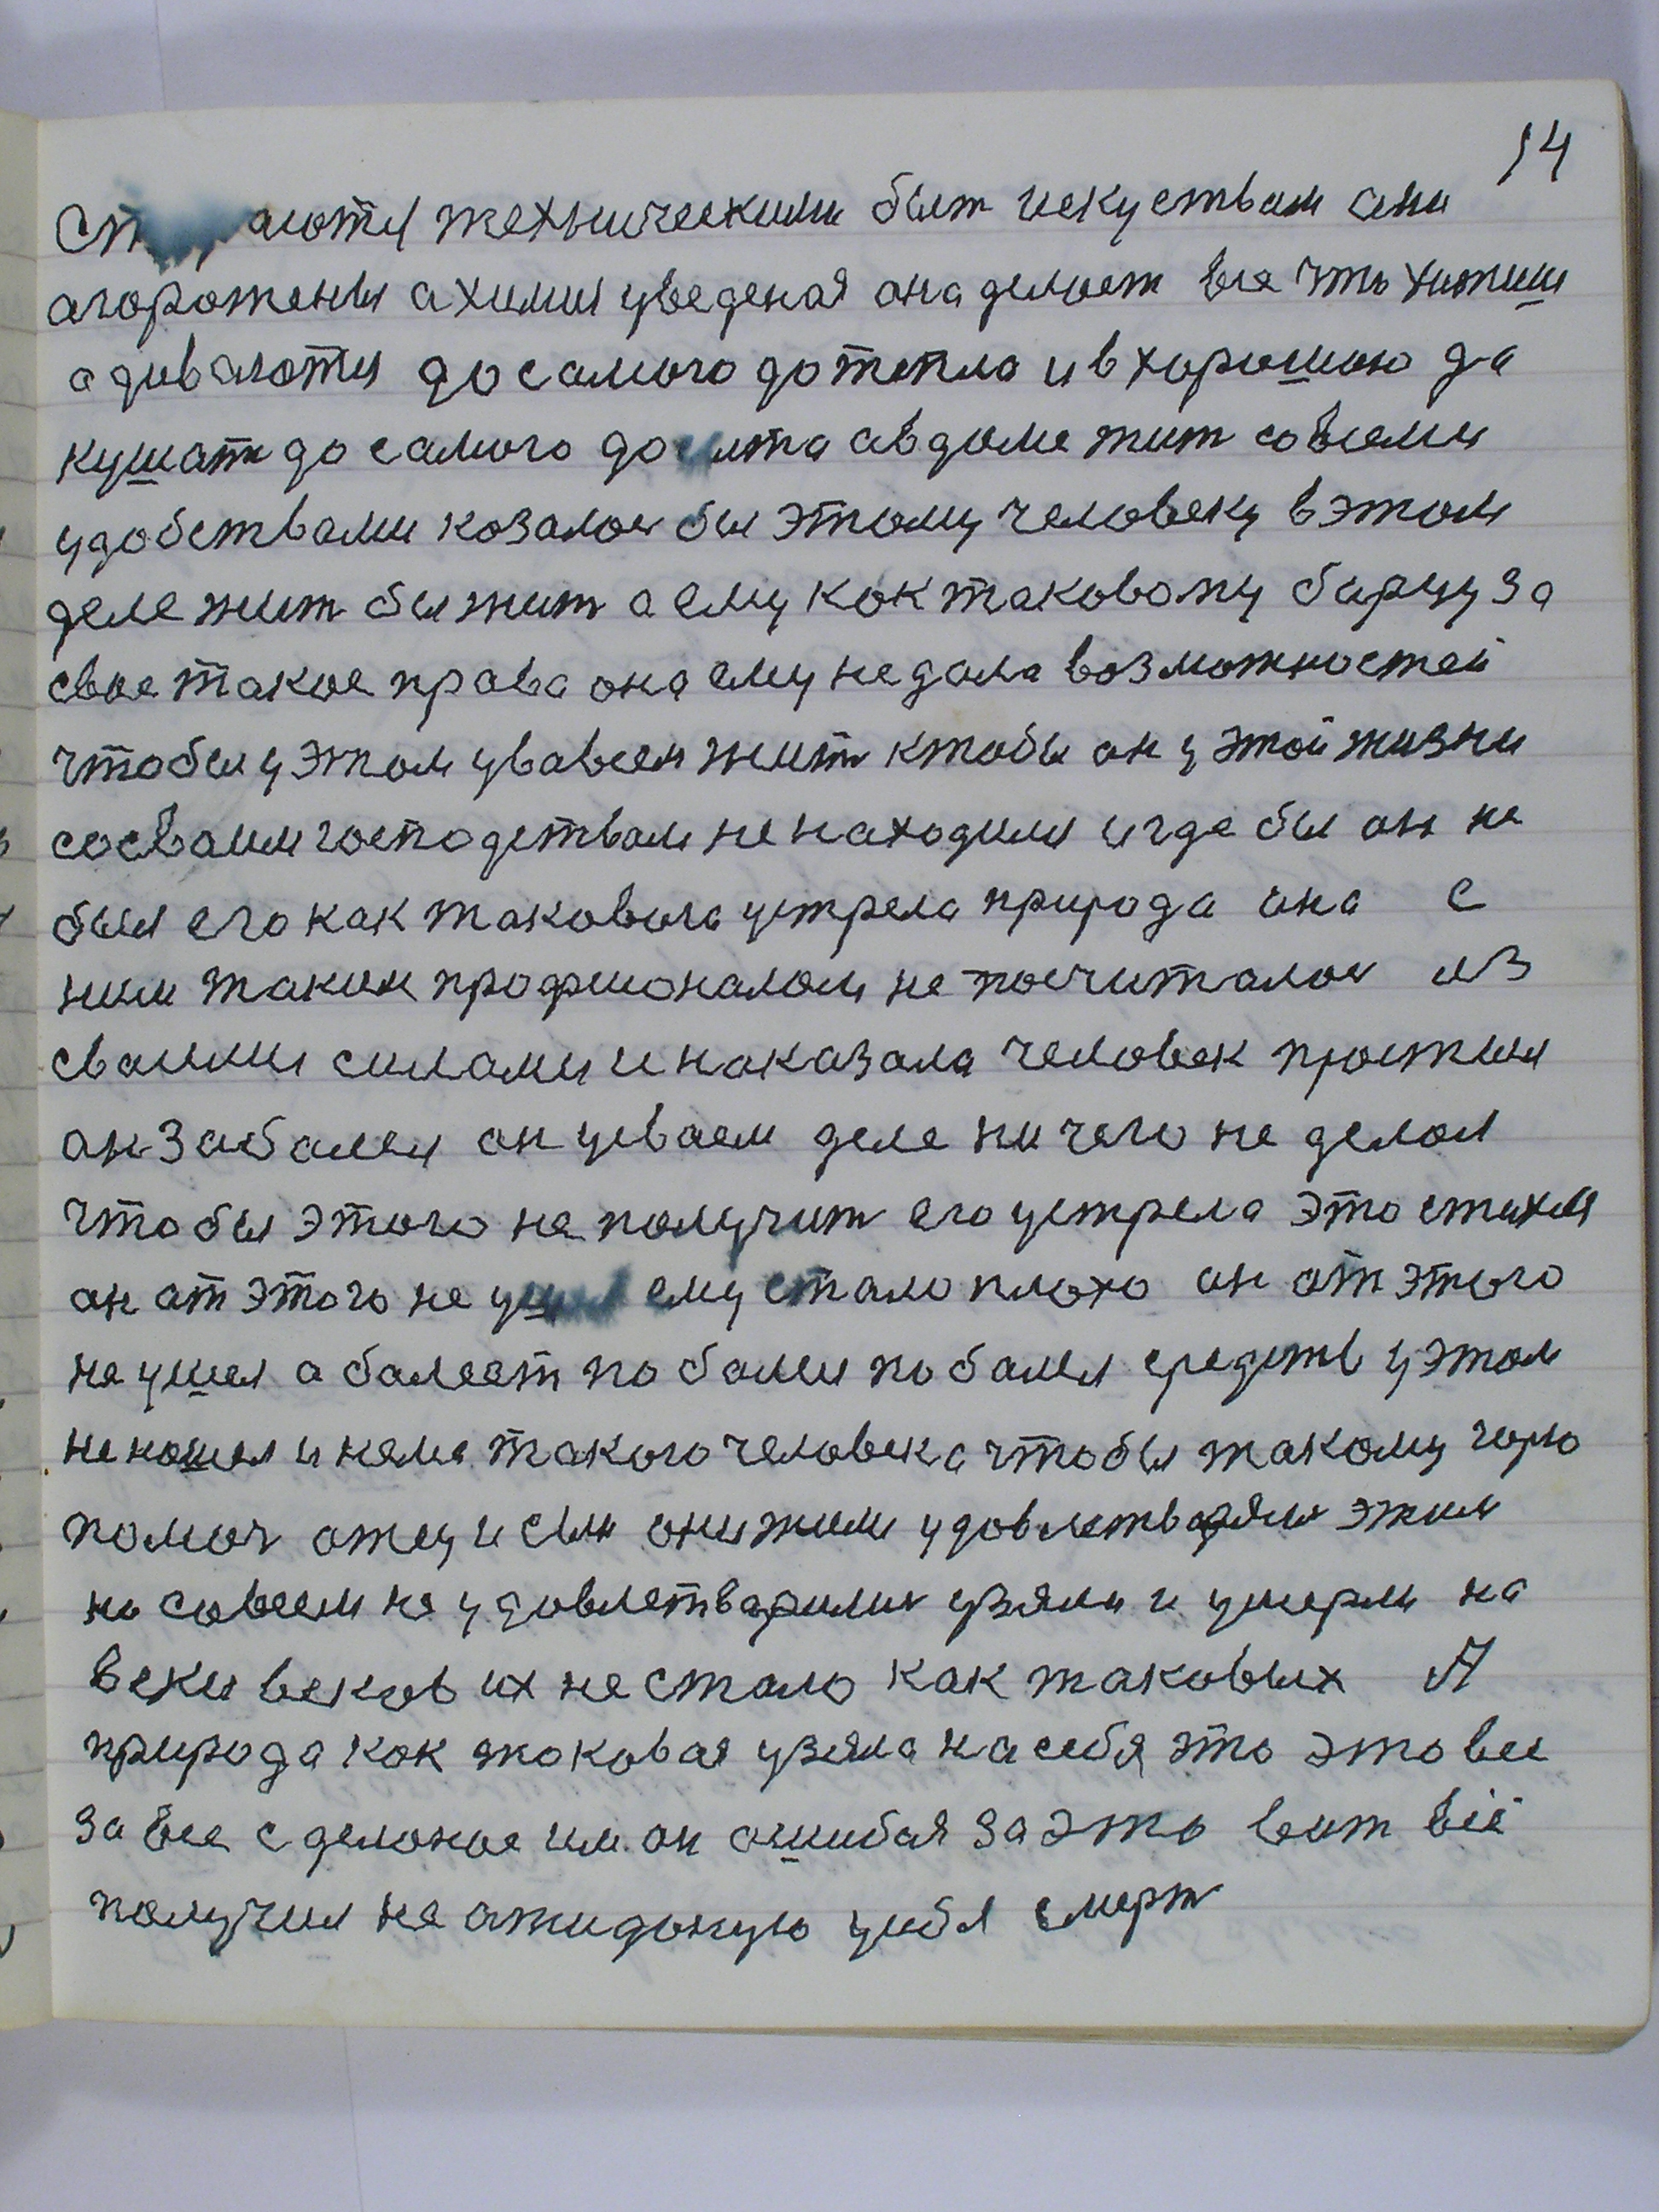 14
аготся техническими быт искуством они
агорожены а химия уведеная она делает все что хотиш
адиваются до самого дотепла и в хорошою да
кушат до самого досыта а в доме жит со всеми
удобствами козалос бы этому человеку в этом
деле жит бы жит а ему как таковому барцу за
свое такое права она ему не дала возможностей
чтобы у этом увавсем жит ктобы он у этой жизни
сосваим господствам не находился и где бы он не
был его как таковога устрела природа она с
ним таким профисоналом не посчиталос из
сваими силами и наказала человек простыл
он забалел он усваем деле ни чего не делал
чтобы этого не получит его устрела это стихия
он ат этого не ушел ему стало плохо он ат этого
не ушел а балеет по болел по болел средств у этом
не нашел и нема такого человека чтобы такому горю
помоч атец и сын они жили удовлетваряли этим
но совсем не удовлетварилис узяли и умерли на
веки веков их не стало как таковых А
природа как токовая узяла на себя это это все
за все сделоное им он ошибся за это вит всё
получил не ажиданую усибя смерт